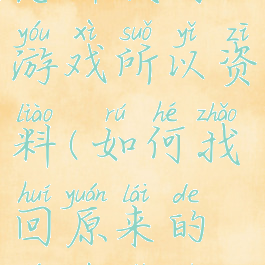 yóu xì suǒ yǐ zī
游戏所以资
liào rú hé zhǎo
料(如何找
huí yuán lái de
回原来的